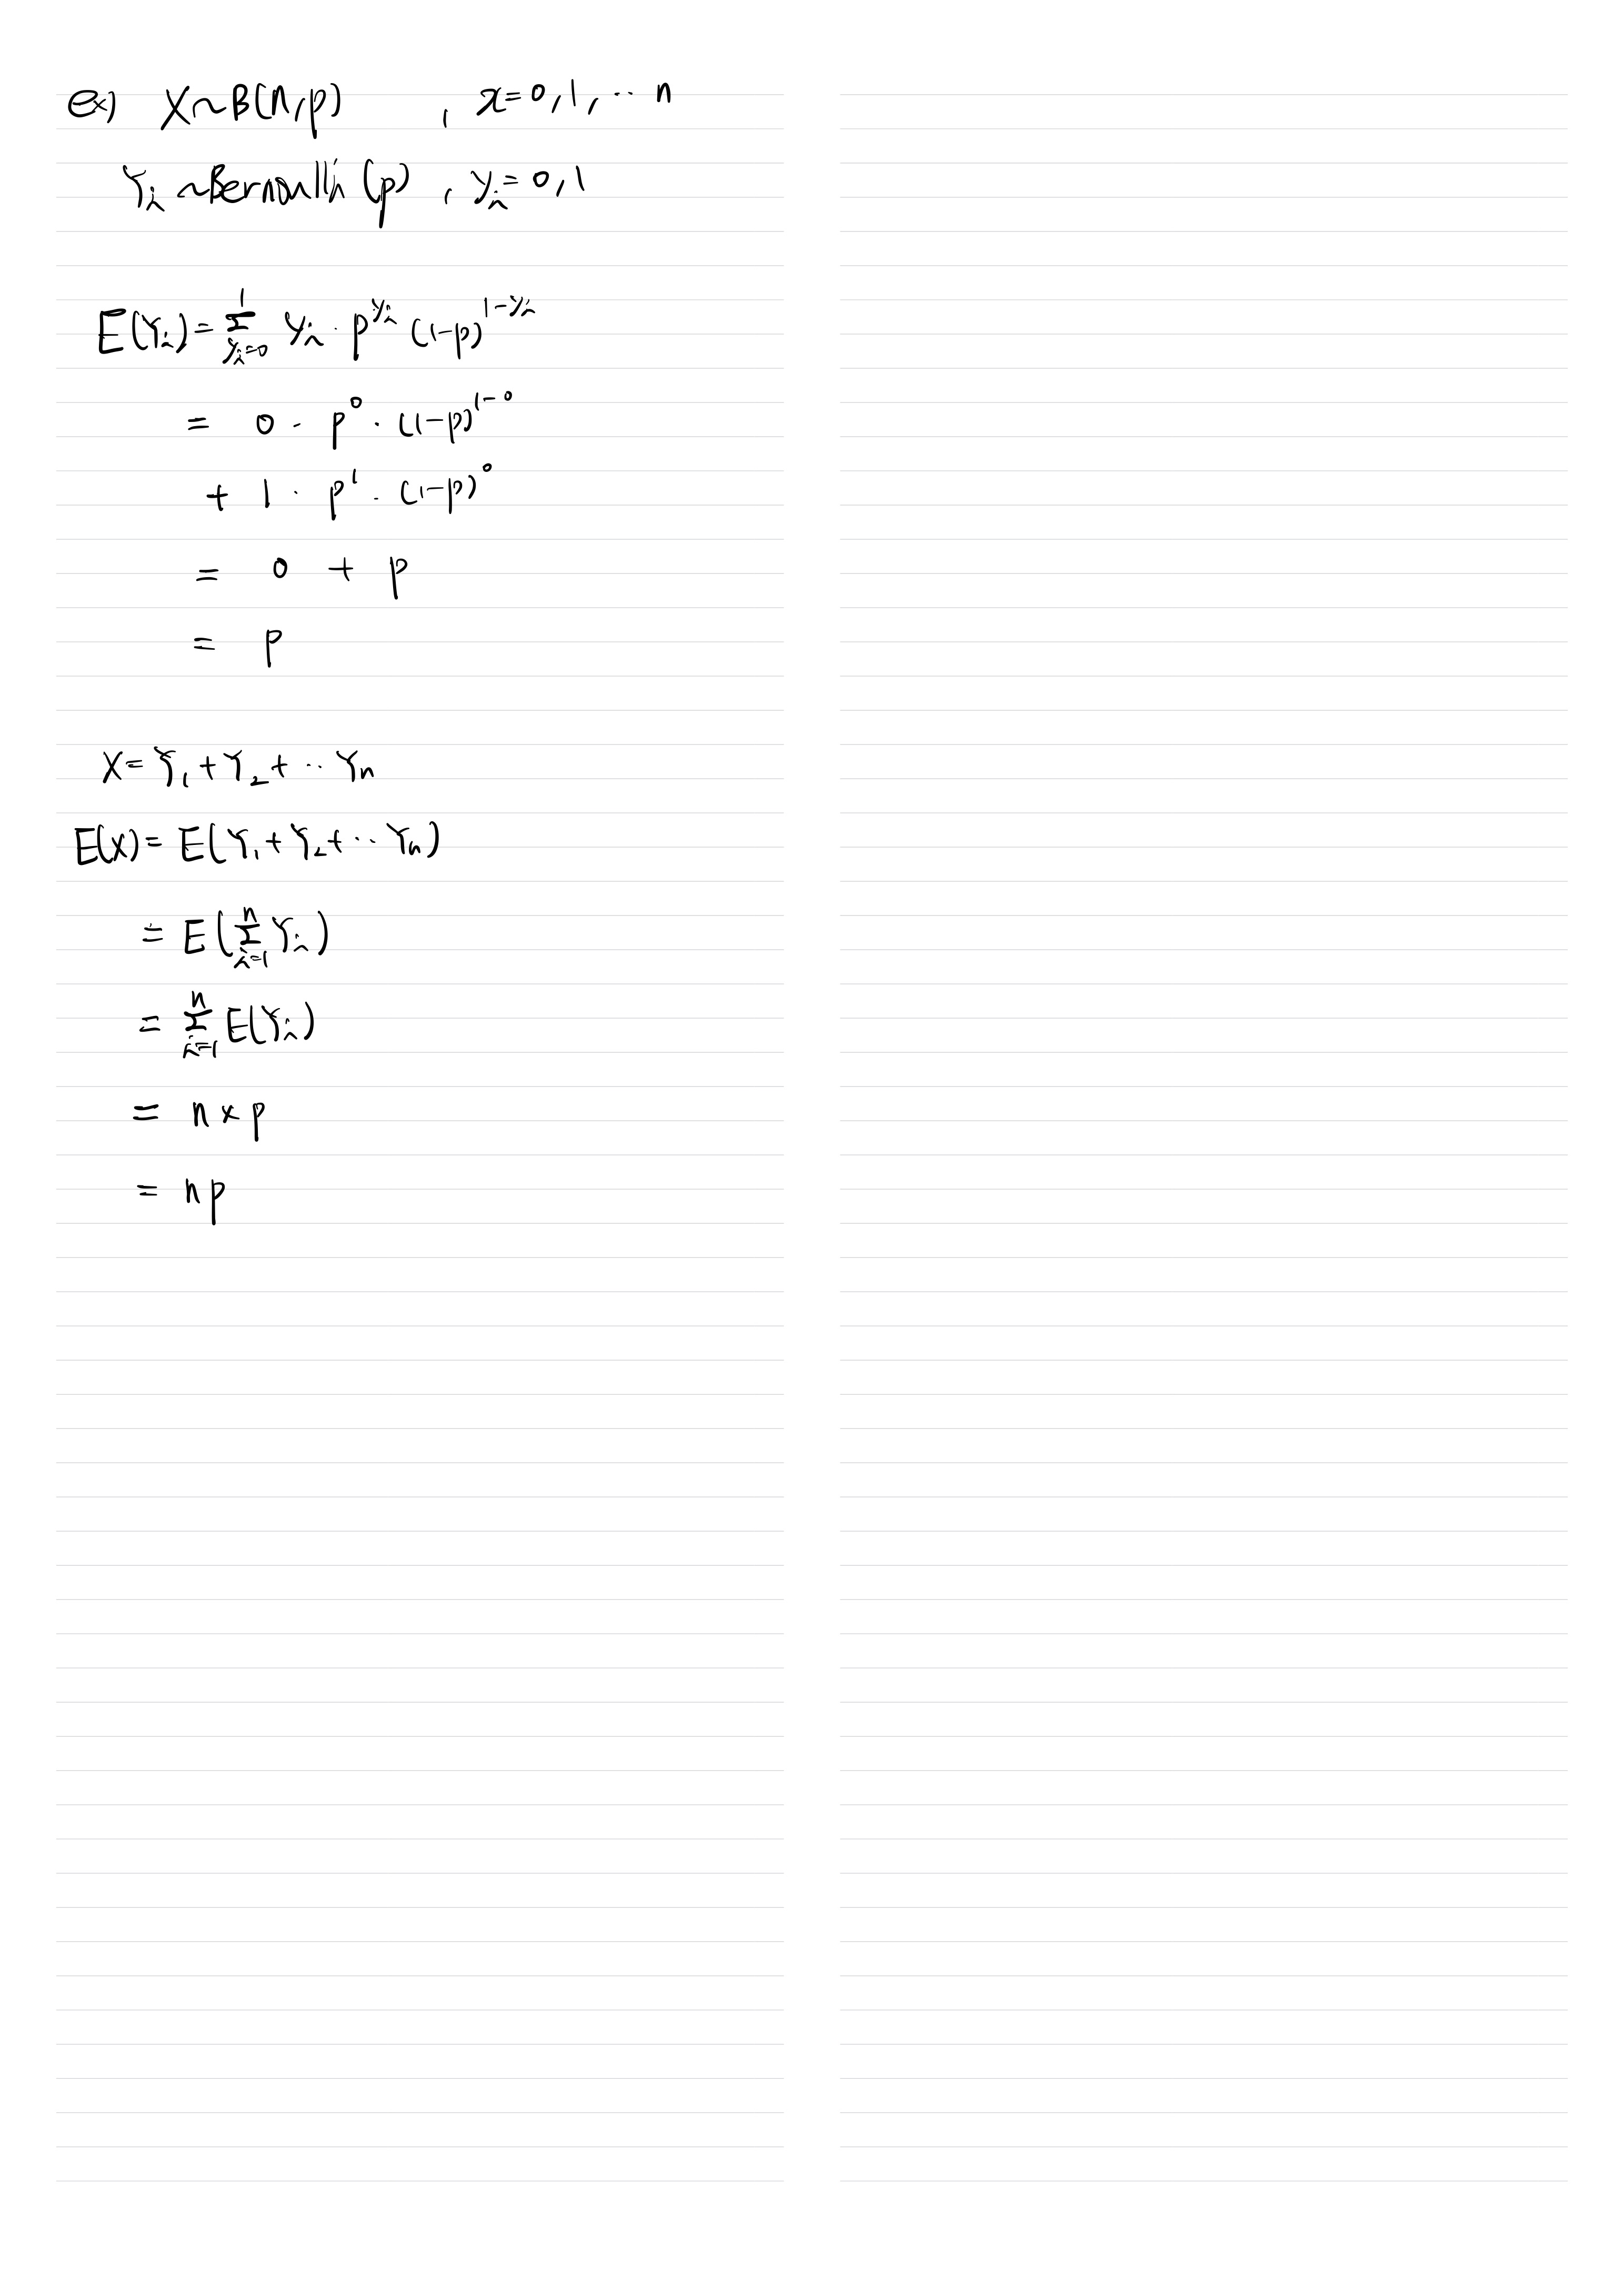 ex) X~B(n,p) , x=0,1,‥n
Yi ~Bernoulli (p) , yi=0,1
E(Yi)= Σ_{yi=0}^{1} yi · p^{yi} (1-p)^{1-yi}
= 0 · p^0 · (1-p)^{1-0}
+ 1 · p^1 · (1-p)^0
= 0 + p
= p
X=Y1+Y2+‥Yn
E(X)=E(Y1+Y2+‥Yn)
=E(Σ_{i=1}^{n} Yi)
= Σ_{i=1}^{n} E(Yi)
= n×p
= np